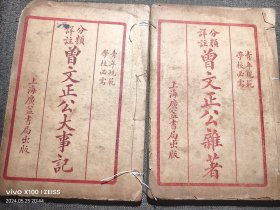 青年規範
學校必需
分類
詳註
曾文正公雜著
上海廣益書局出版
青年規範
學校必需
分類
詳註
曾文正公大事記
上海廣益書局出版
vivo X100 | ZEISS
2024.05.25 20:44